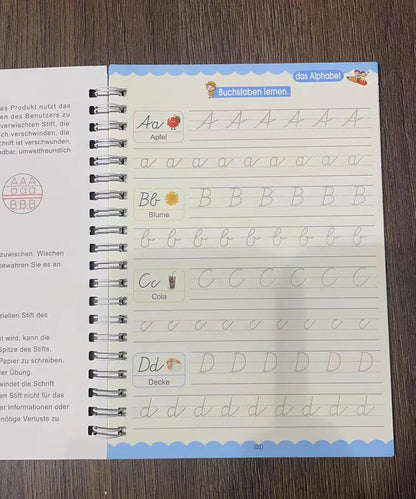 as Produkt nutzt das
en des Benutzers zu
verwischten Stift, die
ch verschwinden, die
chrift ist verschwunden,
ndbar, umweltfreundlich
AAA
aaa
BBB
zuwischen. Wischen
bewahren Sie es an
ziellen Stift des
et wird, kann die
Spitze des Stifts,
Papier zu schreiben.
ler Übung.
windet die Schrift
en Stift nicht für das
er Informationen oder
nötige Verluste zu
das Alphabet
Buchstaben lernen.
Aa
Apfel
A A A A A A
a a a a a a a a a
Bb
Blume
B B B B B B
b b b b b b b b b
Cc
Cola
C C C C C C
c c c c c c c c c
Dd
Decke
D D D D D D
d d d d d d d d d
(01)